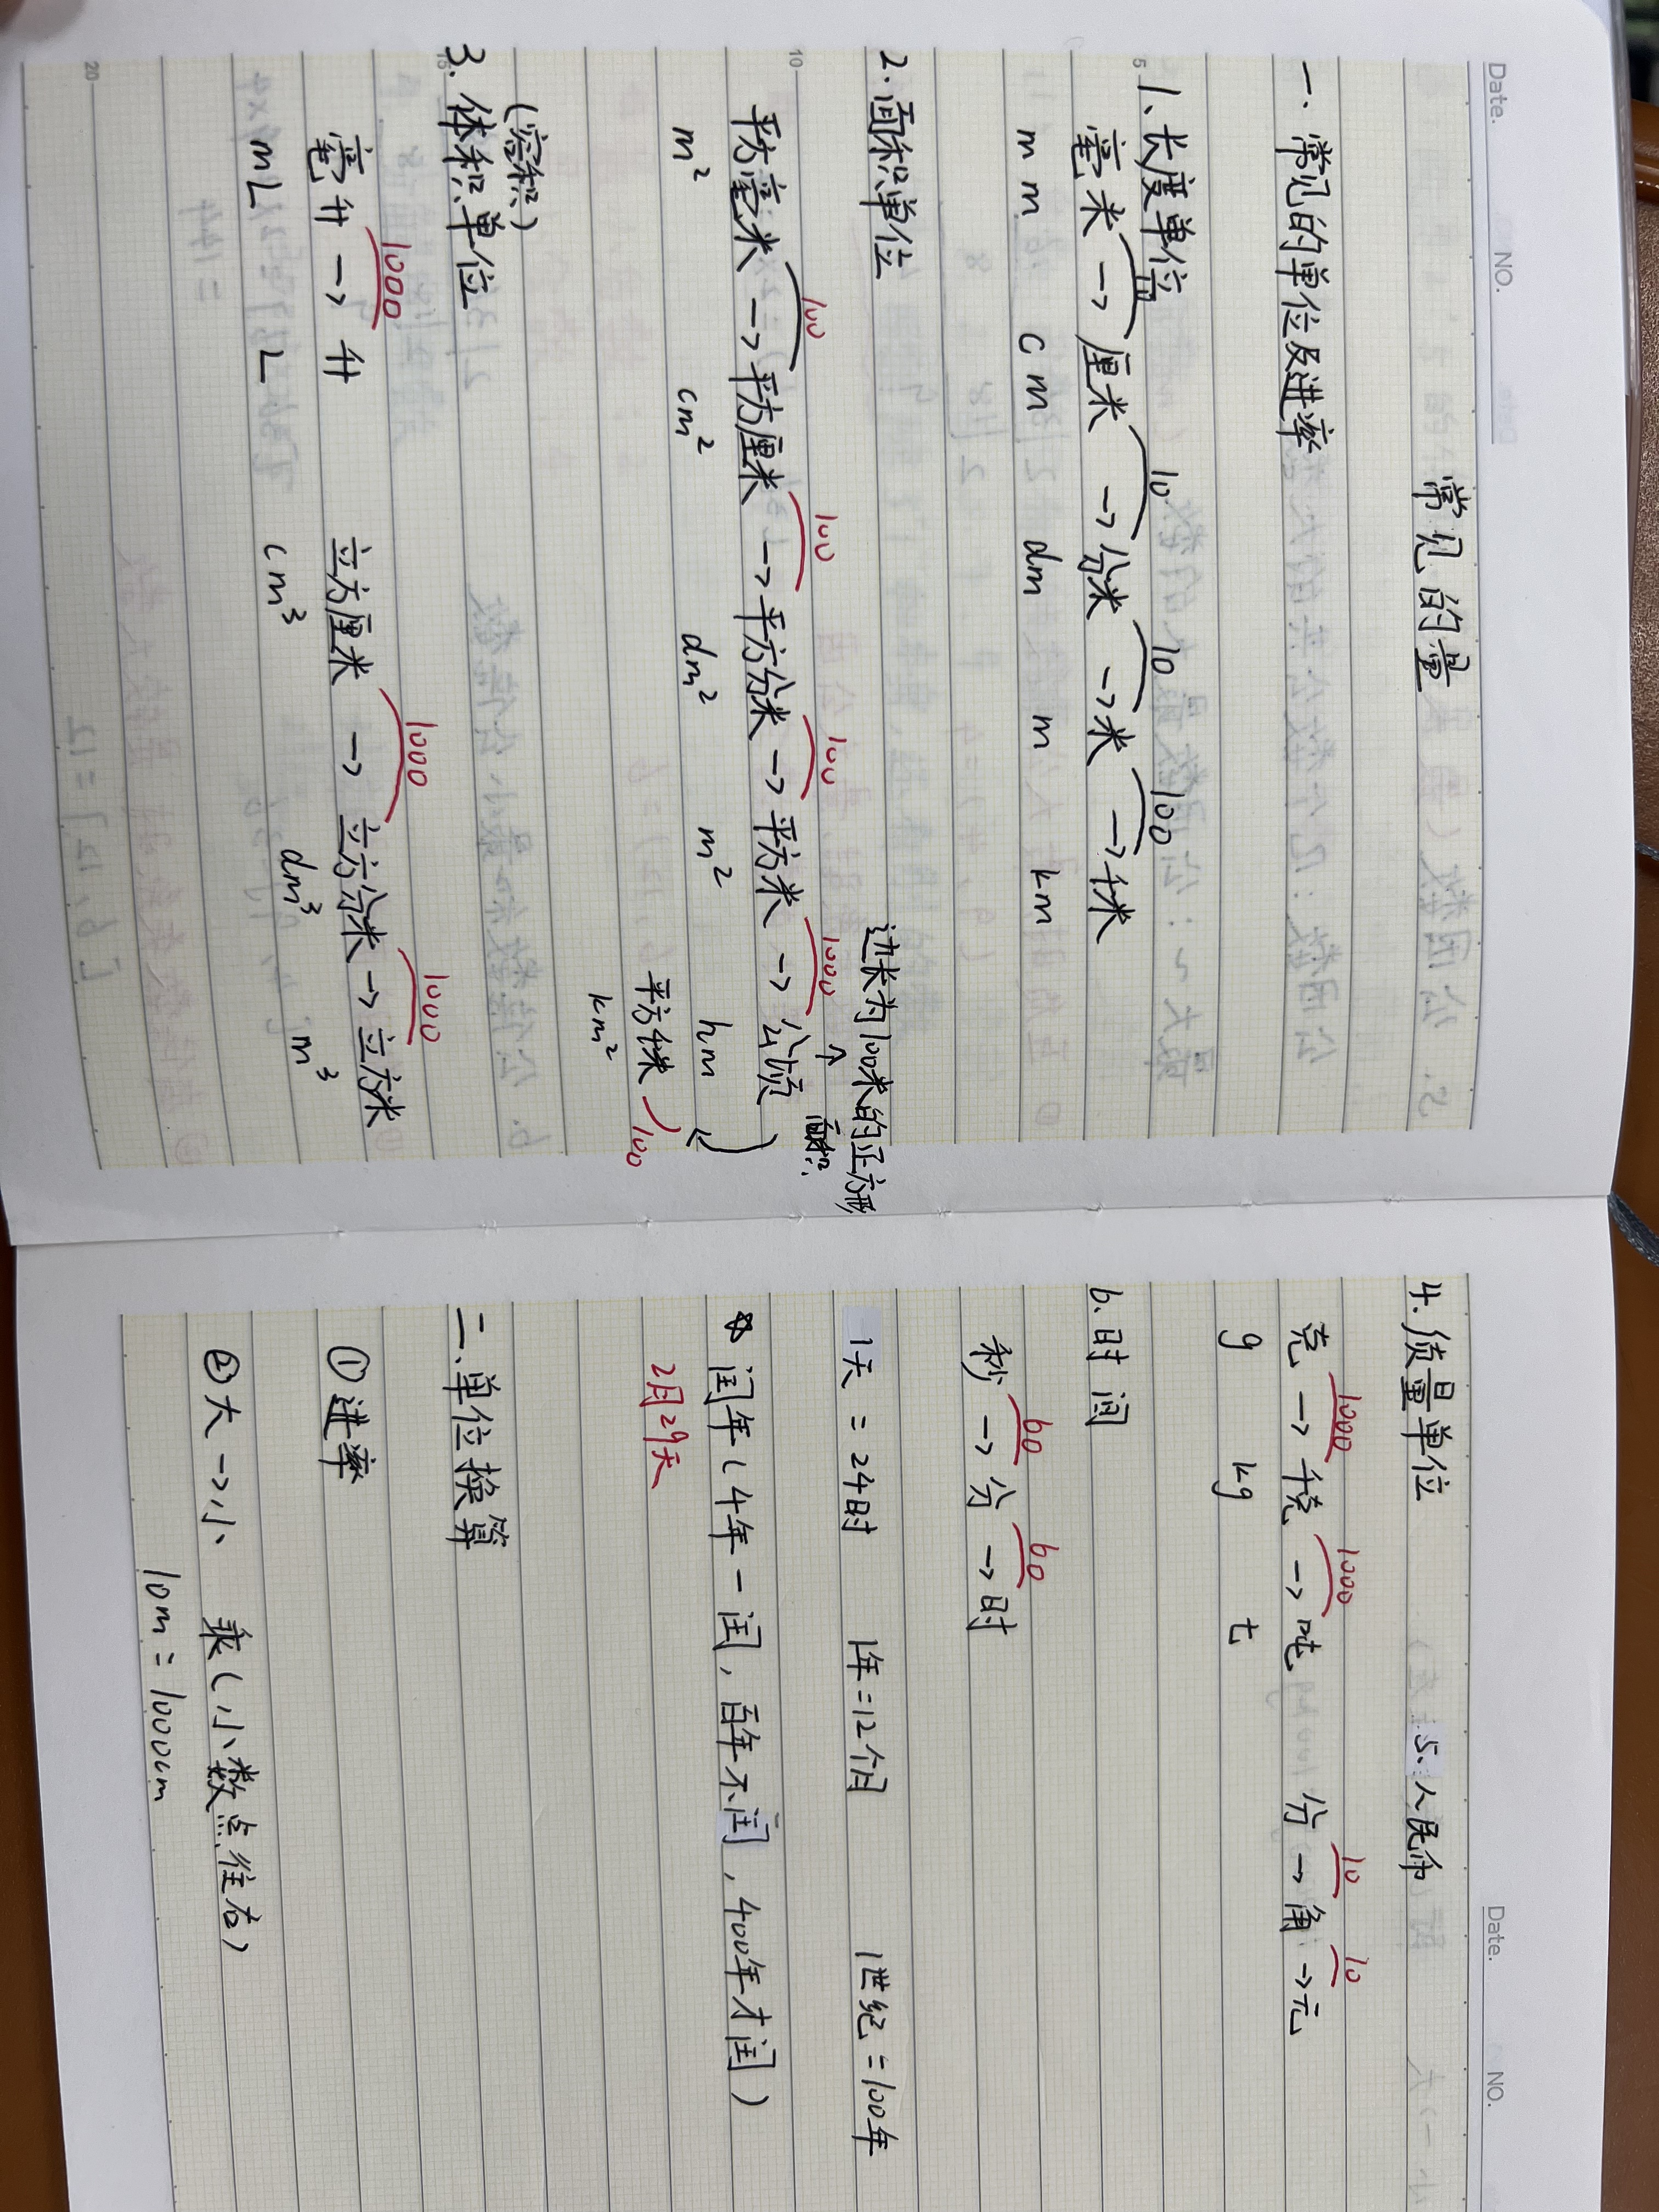 Date. NO.
常见的量
一. 常见的单位及进率
1、长度单位
10 10 10 100
毫米 → 厘米 → 分米 → 米 → 千米
mm cm dm m km
2. 面积单位
边长为100米的正方形
面积
100 100 100 1000
平方毫米 → 平方厘米 → 平方分米 → 平方米 → 公顷
m² cm² dm² m² hm
平方千米 100
km²
(容积)
3. 体积单位
1000 1000 1000
毫升 → 升 立方厘米 → 立方分米 → 立方米
mL L cm³ dm³ m³
5
10
15
20
Date. NO.
4. 质量单位 5. 人民币
1000 1000 10 10
克 → 千克 → 吨 分 → 角 → 元
g kg t
6. 时间
60 60
秒 → 分 → 时
1天 = 24时 1年=12个月 1世纪=100年
闰年(4年一闰,百年不闰,400年才闰)
2月29天
二.单位换算
①进率
②大→小 乘(小数点往右)
10m = 1000cm